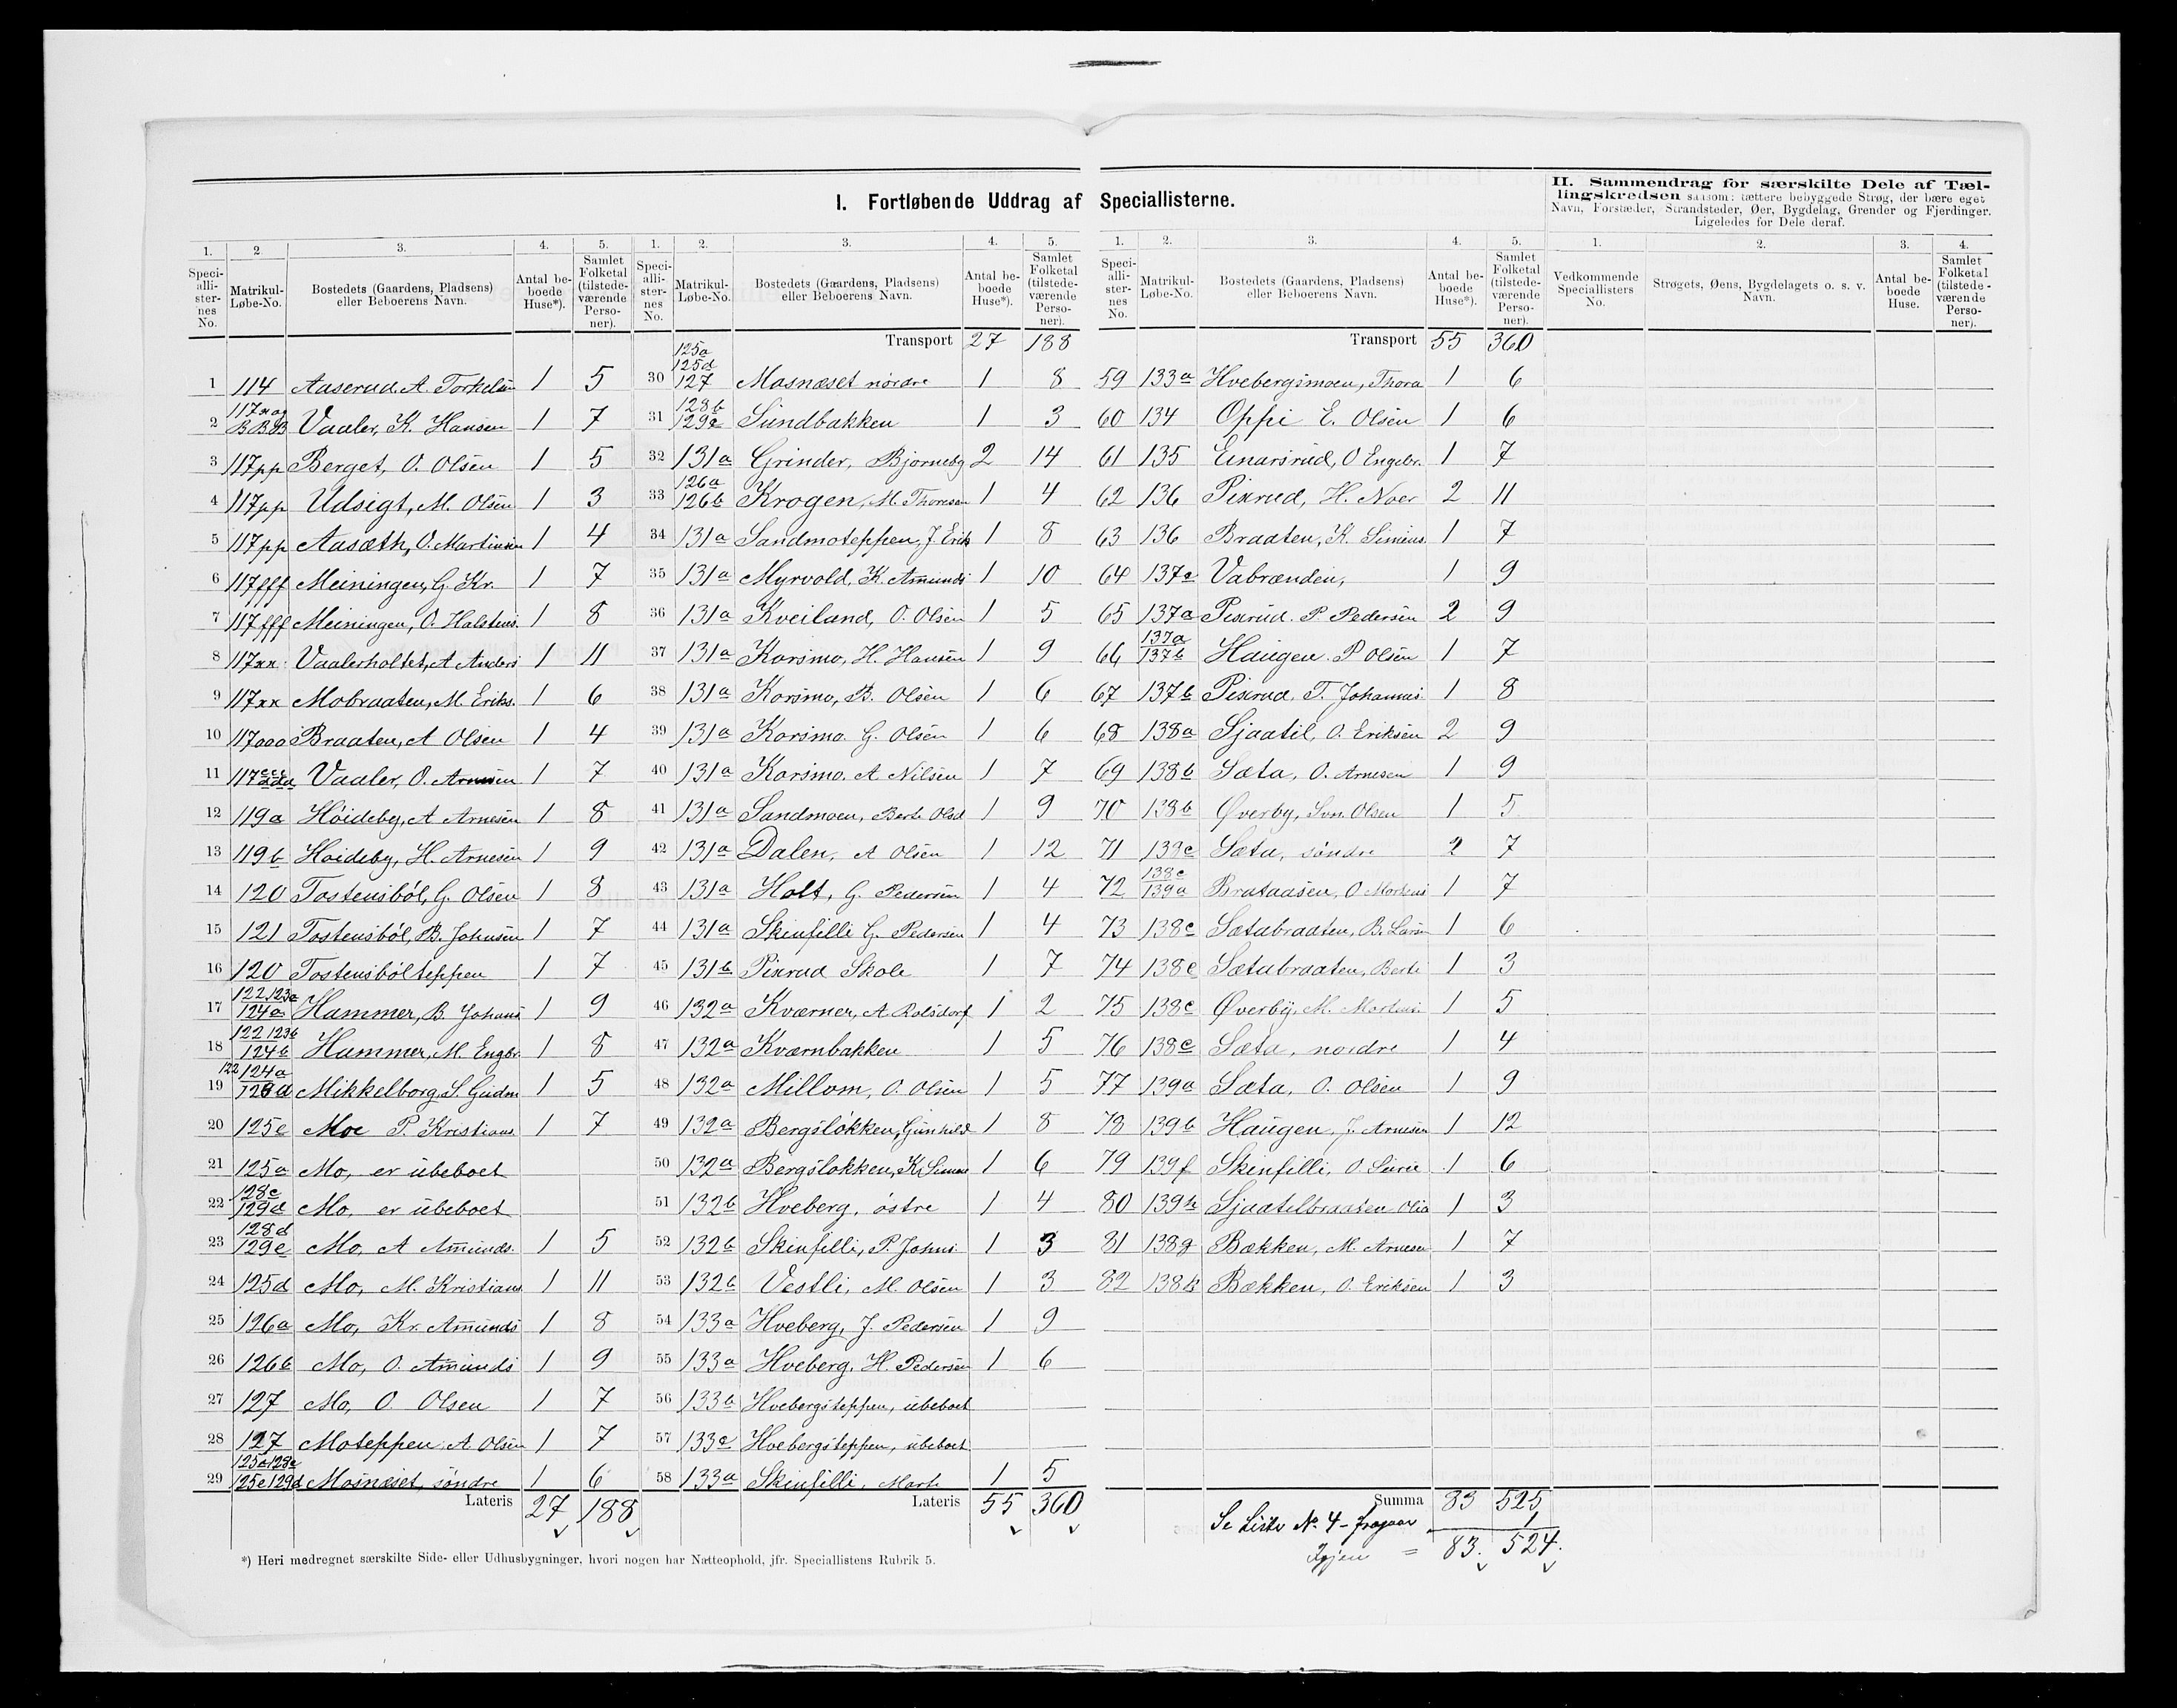 I. Fortløbende Uddrag af Speciallisterne.
II. Sammendrag for særskilte Dele af Tællingskredsen saasom: tættere bebyggede Strøg, der bære eget Navn, Forstæder, Strandsteder, Øer, Bygdelag, Grender og Fjerdinger. Ligeledes for Dele deraf.
1. 2 3. 4. 5.
Speciallisternes No. Matrikul-Løbe-No. Bostedets (Gaardens, Pladsens) eller Beboerens Navn. Antal beboede Huse*). Samlet Folketal (tilstedeværende Personer).
1 114 Aaserud. A. Torkelsen 1 5
2 117 BBB Vaaler, K. Hansen 1 7
3 117pp Berget, O. Olsen 1 5
4 117pp Udsigt, M. Olsen 1 3
5 117pp Aasæth, O. Martinsen 1 4
6 117fff Meiningen, G. Kr. 1 7
7 117fff Meiningen, O. Halstens. 1 8
8 117xx Vaalerholtet, A Anders 1 11
9 117xx Mobraaten, M. Eriks. 1 6
10 117ooo Braaten, A Olsen 1 4
11 117 Vaaler, O. Arnesen 1 7
12 119a Höideby, A Arnesen 1 8
13 119b Höideby, H. Arnesen 1 9
14 120 Tostensböl, G. Olsen 1 8
15 121 Tostensböl, B. Johnsen 1 7
16 120 Tostensbölteppen 1 7
17 122 123a 124a Hammer, B. Johans 1 9
18 122 123b 124b Hammer, M. Engbr. 1 8
19 122 124a Mikkelborg, S. Gudm 1 5
20 125c Moe P. Kristians 1 7
21 125a Mo, er ubeboet
22 128c 129d Mo, er ubeboet
23 128d 129e Mo, A Amunds. 1 5
24 125d Mo, M. Kristians 1 11
25 126a Mo, Kr. Amunds 1 8
26 126b Mo, O. Amunds 1 9
27 127 Mo, O. Olsen 1 7
28 127 Moteppen. A Olsen 1 7
29 125e 129d Mosnæset, söndre 1 6
Lateris 27 188
1. 2. 3. 4. 5.
Speciallisternes No. Matrikul-Løbe-No. Bostedets (Gaardens, Pladsens) eller Beboerens Navn. Antal beboede Huse*). Samlet Folketal (tilstedeværende Personer).
Transport 27 188
30 125a 125d 127 Mosnæset nördre 1 8
31 128b 129c Sundbakken 1 3
32 131a Grinder, Bjorneby 2 14
33 126a 126b Krogen, M. Thoresen 1 4
34 131a Sandmoteppen, J. Erik 1 8
35 131a Myrvold, K. Amunds 1 10
36 131a Kveiland, O. Olsen 1 5
37 131a Korsmo, H. Hansen 1 9
38 131a Korsmo, B. Olsen 1 6
39 131a Korsmo. G. Olsen 1 6
40 131a Korsmo. A Nilsen 1 7
41 131a Sandmoen, Berte Olsd 1 9
42 131a Dalen, A Olsen 1 12
43 131a Holt, G. Pedersen 1 4
44 131a Skinfilli G. Pedersen 1 4
45 131b Pixrud Skole 1 7
46 132a Kværner, A Rolsdorf 1 2
47 132a Kværnbakken 1 5
48 132a Millom, O. Olsen 1 5
49 132a Bergslökken, Gunhild 1 8
50 132a Bergslökken, K. Simens 1 6
51 132b Hveberg, östre 1 4
52 132b Skinfilli, P. Johns. 1 3
53 132b Vestli, M. Olsen 1 3
54 133a Hveberg, J. Pedersen 1 9
55 133a Hveberg, H. Pedersen 1 6
56 133b Hvebergsteppen, ubeboet
57 133c Hvebergsteppen, ubeboet
58 133a Skinfilli, Marte 1 5
Lateris 55 360
1. 2. 3. 4. 5.
Speciallisternes No. Matrikul-Løbe-No. Bostedets (Gaardens, Pladsens) eller Beboerens Navn. Antal beboede Huse*). Samlet Folketal (tilstedeværende Personer).
Transport 55 360
59 133a Hvebergsmoen, Thora 1 6
60 134 Oppi E. Olsen 1 6
61 135 Einarsrud, O Engebr. 1 7
62 136 Pixrud, H. Noer 2 11
63 136 Braaten, K. Simens. 1 7
64 137a Vabrænden, 1 9
65 137a Pixrud. P. Pedersen 2 9
66 137a 137b Haugen. P Olsen 1 7
67 137b Pixrud, T. Johannes. 1 8
68 138a Sjaatil, O. Eriksen 2 9
69 138b Sæta, O. Arnesen 1 9
70 138b Øverby, Svn. Olsen 1 5
71 138c Sæta, söndre 2 7
72 138c 139a Brataasen, O Mortens 1 7
73 138c Sætabraaten, B. Larsn 1 6
74 138c Sætabraaten, Berte 1 3
75 138c Øverby, M. Martins. 1 5
76 138c Sæta, nordre 1 4
77 139a Sæta, O. Olsen 1 9
78 139b Haugen, J. Arnesen 1 12
79 139f Skinfilli, O. 1 6
80 139h Sjaatilbraaten Olia 1 3
81 138g Bækken, M. Arnesen 1 7
82 138b Bækken, O. Eriksen 1 3
Summa 83 525
Se Liste No. 4 - fragaar 1
Igjen = 83. 524.
1. 2. 3. 4.
Vedkommende Speciallisters No. Strøgets, Øens, Bygdelagets o. s. v. Navn. Antal beboede Huse. Samlet Folketal (tilstedeværende Personer).
*) Heri medregnet særskilte Side- eller Udhusbygninger, hvori nogen har Natteophold, jfr. Speciallistens Rubrik 5.